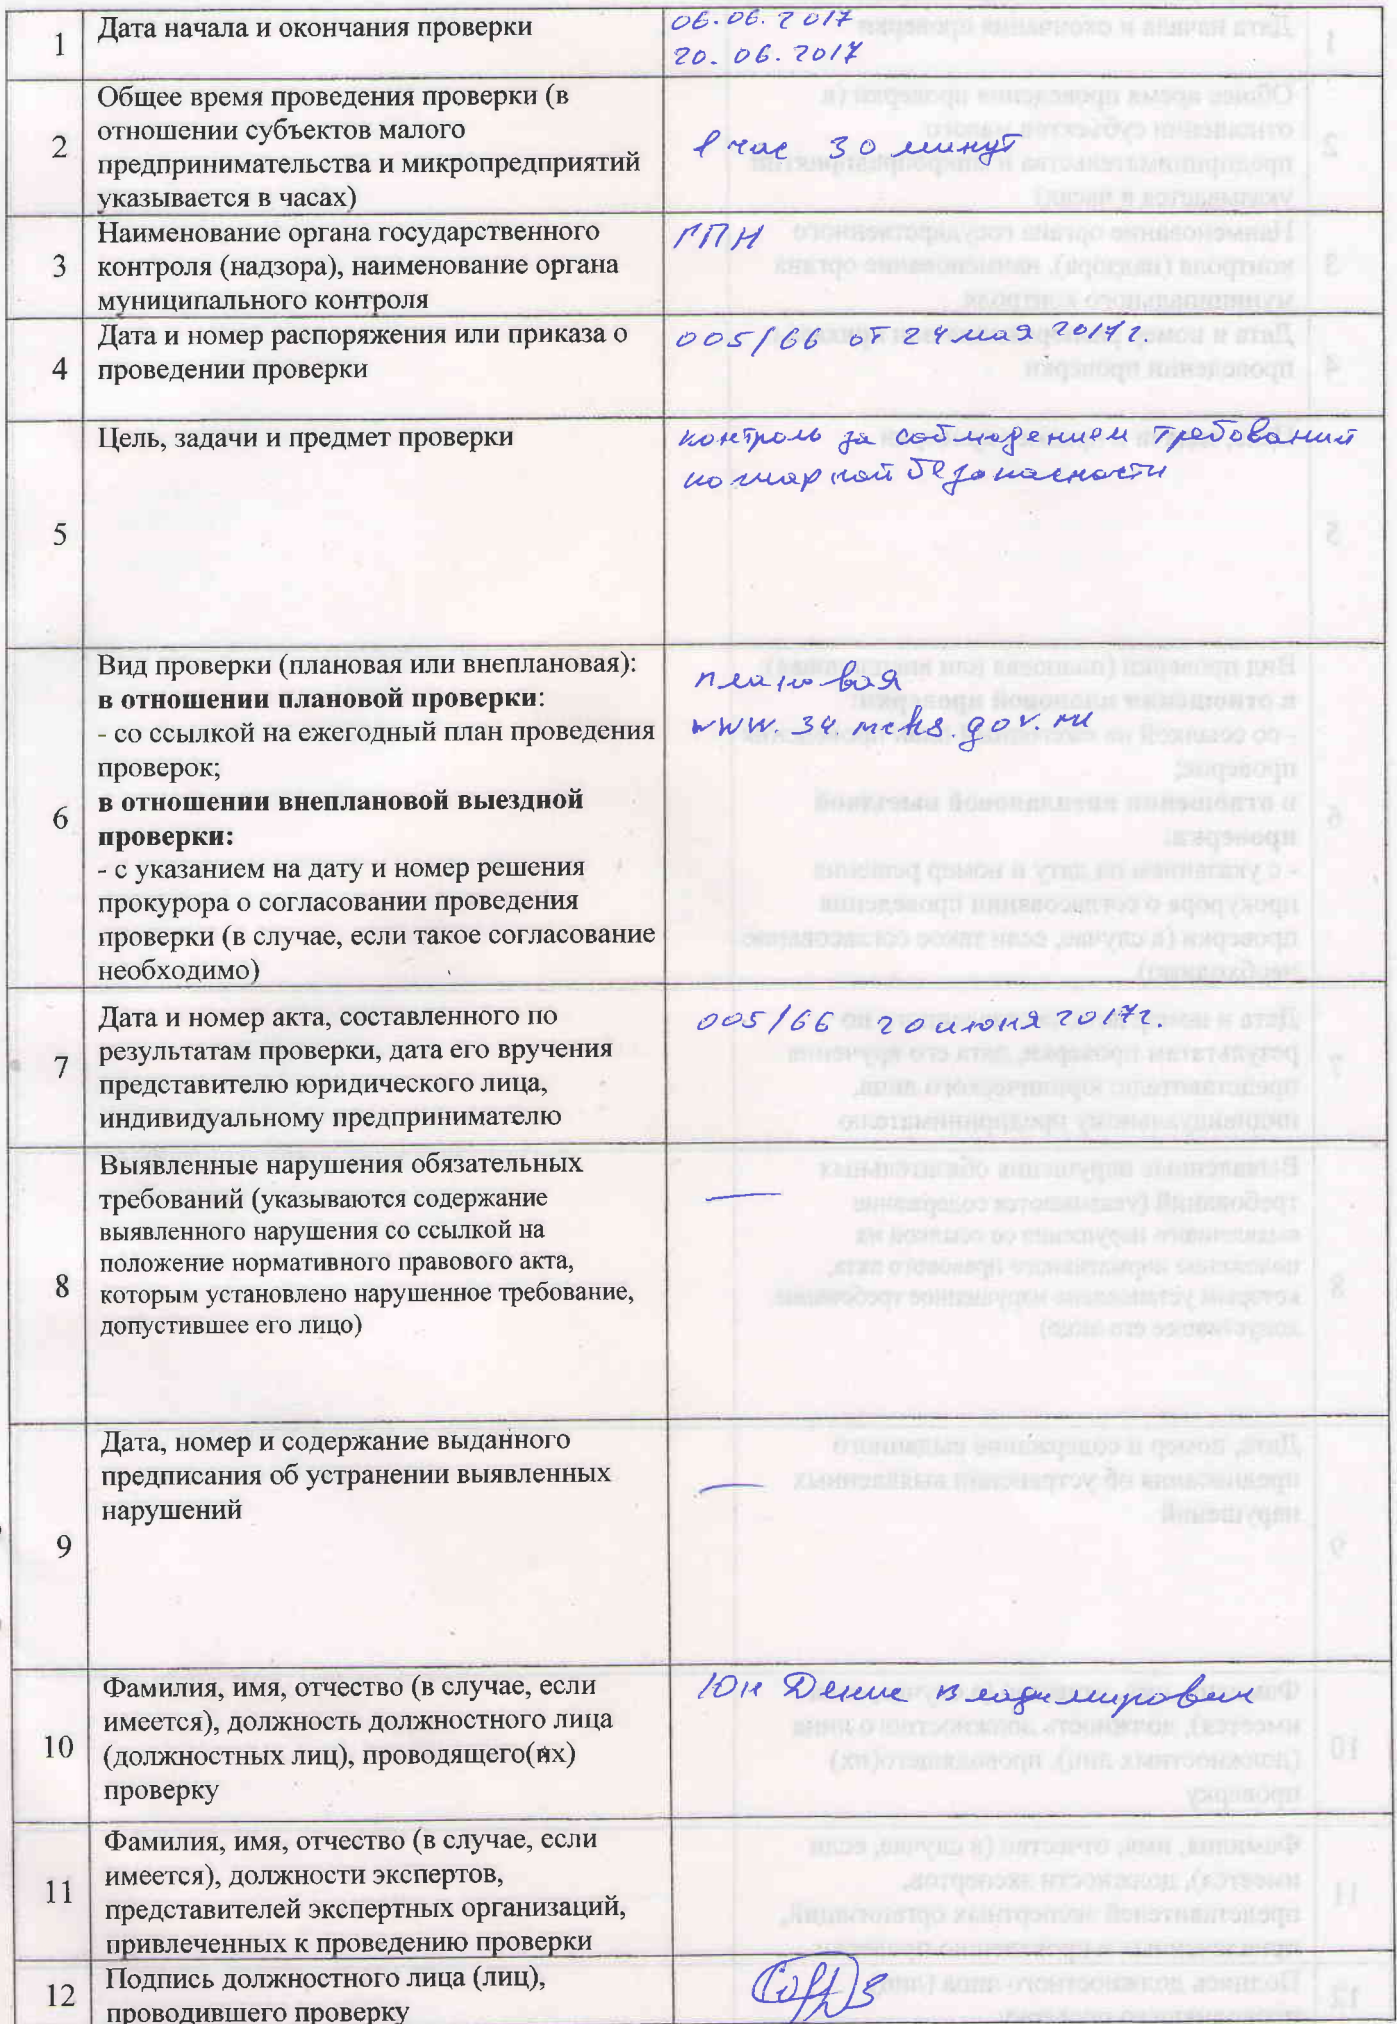 1
Дата начала и окончания проверки
06.06.2017
20.06.2017
2
Общее время проведения проверки (в
отношении субъектов малого
предпринимательства и микропредприятий
указывается в часах)
1 час 30 минут
3
Наименование органа государственного
контроля (надзора), наименование органа
муниципального контроля
ГПН
4
Дата и номер распоряжения или приказа о
проведении проверки
005/66 от 24 мая 2017г.
5
Цель, задачи и предмет проверки
контроль за соблюдением требований
пожарной безопасности
6
Вид проверки (плановая или внеплановая):
в отношении плановой проверки:
- со ссылкой на ежегодный план проведения
проверок;
в отношении внеплановой выездной
проверки:
- с указанием на дату и номер решения
прокурора о согласовании проведения
проверки (в случае, если такое согласование
необходимо)
плановая
www.34.mchs.gov.ru
7
Дата и номер акта, составленного по
результатам проверки, дата его вручения
представителю юридического лица,
индивидуальному предпринимателю
005/66 20 июня 2017г.
8
Выявленные нарушения обязательных
требований (указываются содержание
выявленного нарушения со ссылкой на
положение нормативного правового акта,
которым установлено нарушенное требование,
допустившее его лицо)
—
9
Дата, номер и содержание выданного
предписания об устранении выявленных
нарушений
—
10
Фамилия, имя, отчество (в случае, если
имеется), должность должностного лица
(должностных лиц), проводящего(их)
проверку
Юн Денис Владимирович
11
Фамилия, имя, отчество (в случае, если
имеется), должности экспертов,
представителей экспертных организаций,
привлеченных к проведению проверки
12
Подпись должностного лица (лиц),
проводившего проверку